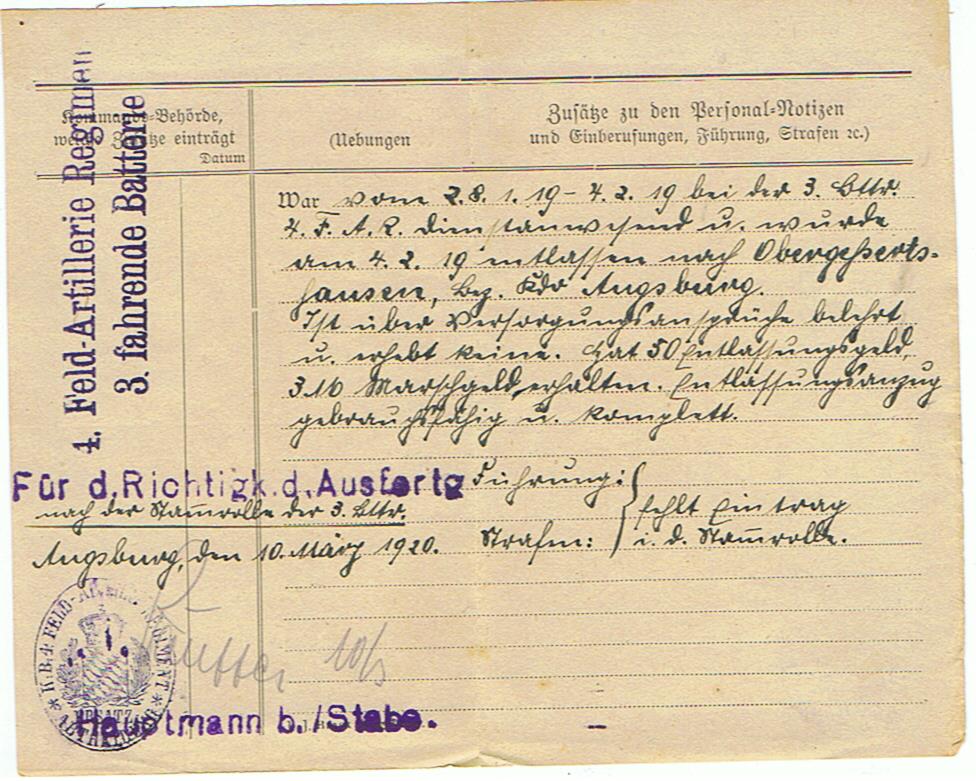 4. Feld-Artillerie Regimen
3. fahrende Batterie
Kommando-Behörde,
welche Zusätze einträgt
Datum
(Uebungen
Zusätze zu den Personal-Notizen
und Einberufungen, Führung, Strafen ꝛc.)
War vom 28. 1. 19 – 4. 2. 19 bei der 3. Bttr.
4. F. A. R. dienstanwesend u. wurde
am 4. 2. 19 entlassen nach Obergesserts-
hausen, Bez. Kdo Augsburg.
Ist über Versorgungsansprüche belehrt
u. erhebt keine. Hat 50 Entlassungsgeld,
3 M Marschgeld erhalten. Entlassungsanzug
gebrauchsfähig u. komplett.
Für d. Richtigk. d. Ausfertg
nach der Stam̄rolle der 3. Bttr.
Augsburg, den 10. März 1920.
Führung:
Strafen:
fehlt Eintrag
i. d. Stam̄rolle.
* K. B. 4. FELD-ARTILLERIE-REGIMENT *
ERSATZ
ABTHEILUNG
10/3
Hauptmann b./Stabe.